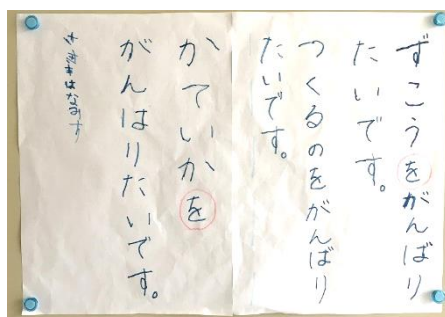 ずこうをがんばり
たいです。
つくるのをがんばり
たいです。
かていかを
がんはりたいです。